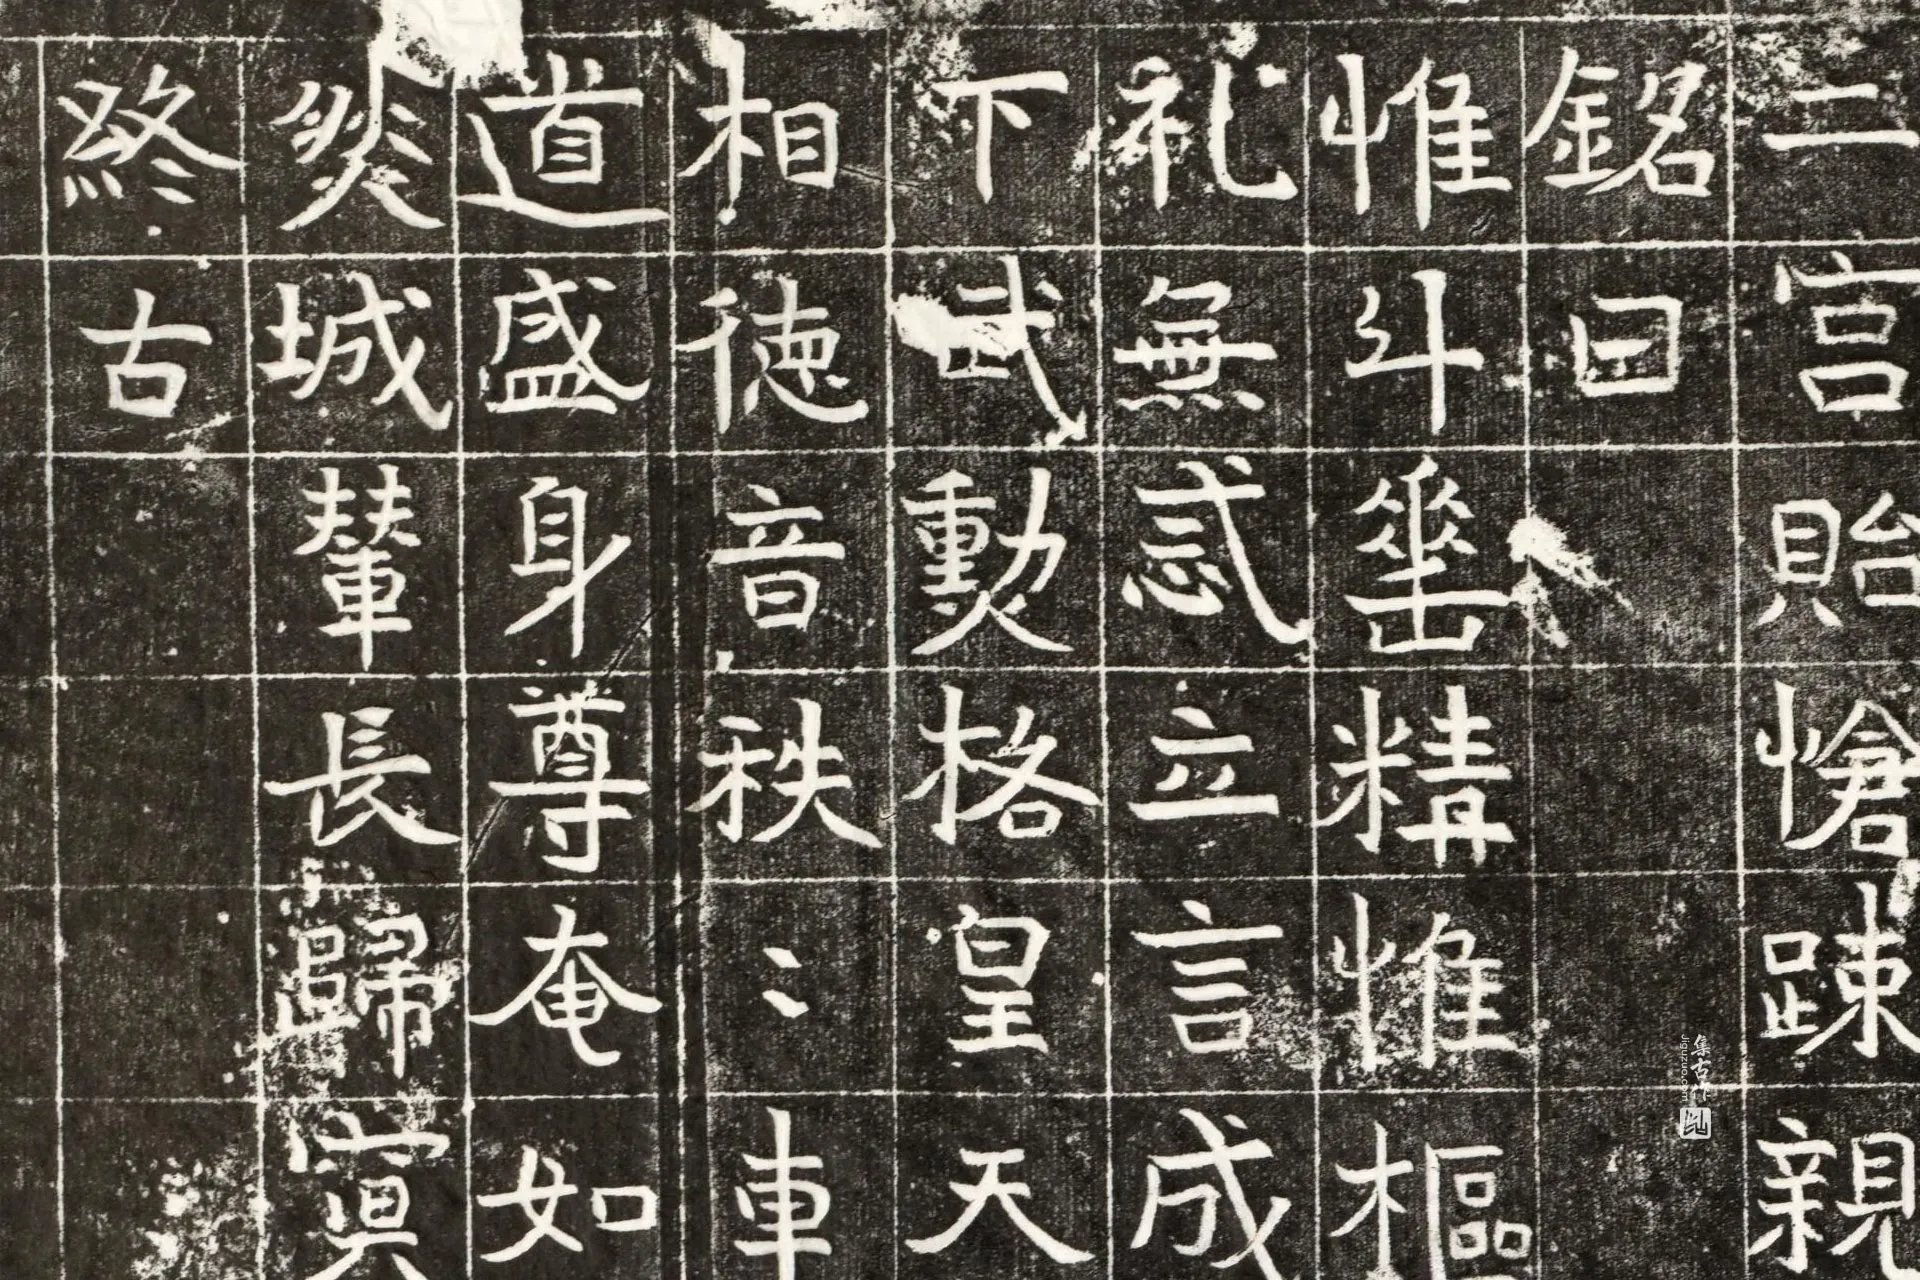 二宮貽愴踈親
銘曰
惟斗垂精惟樞
礼無忒立言成
下武勲格皇天
相徳音秩〻車
道盛身尊奄如
城輦長歸
終古
集古作
jiguzuo.com